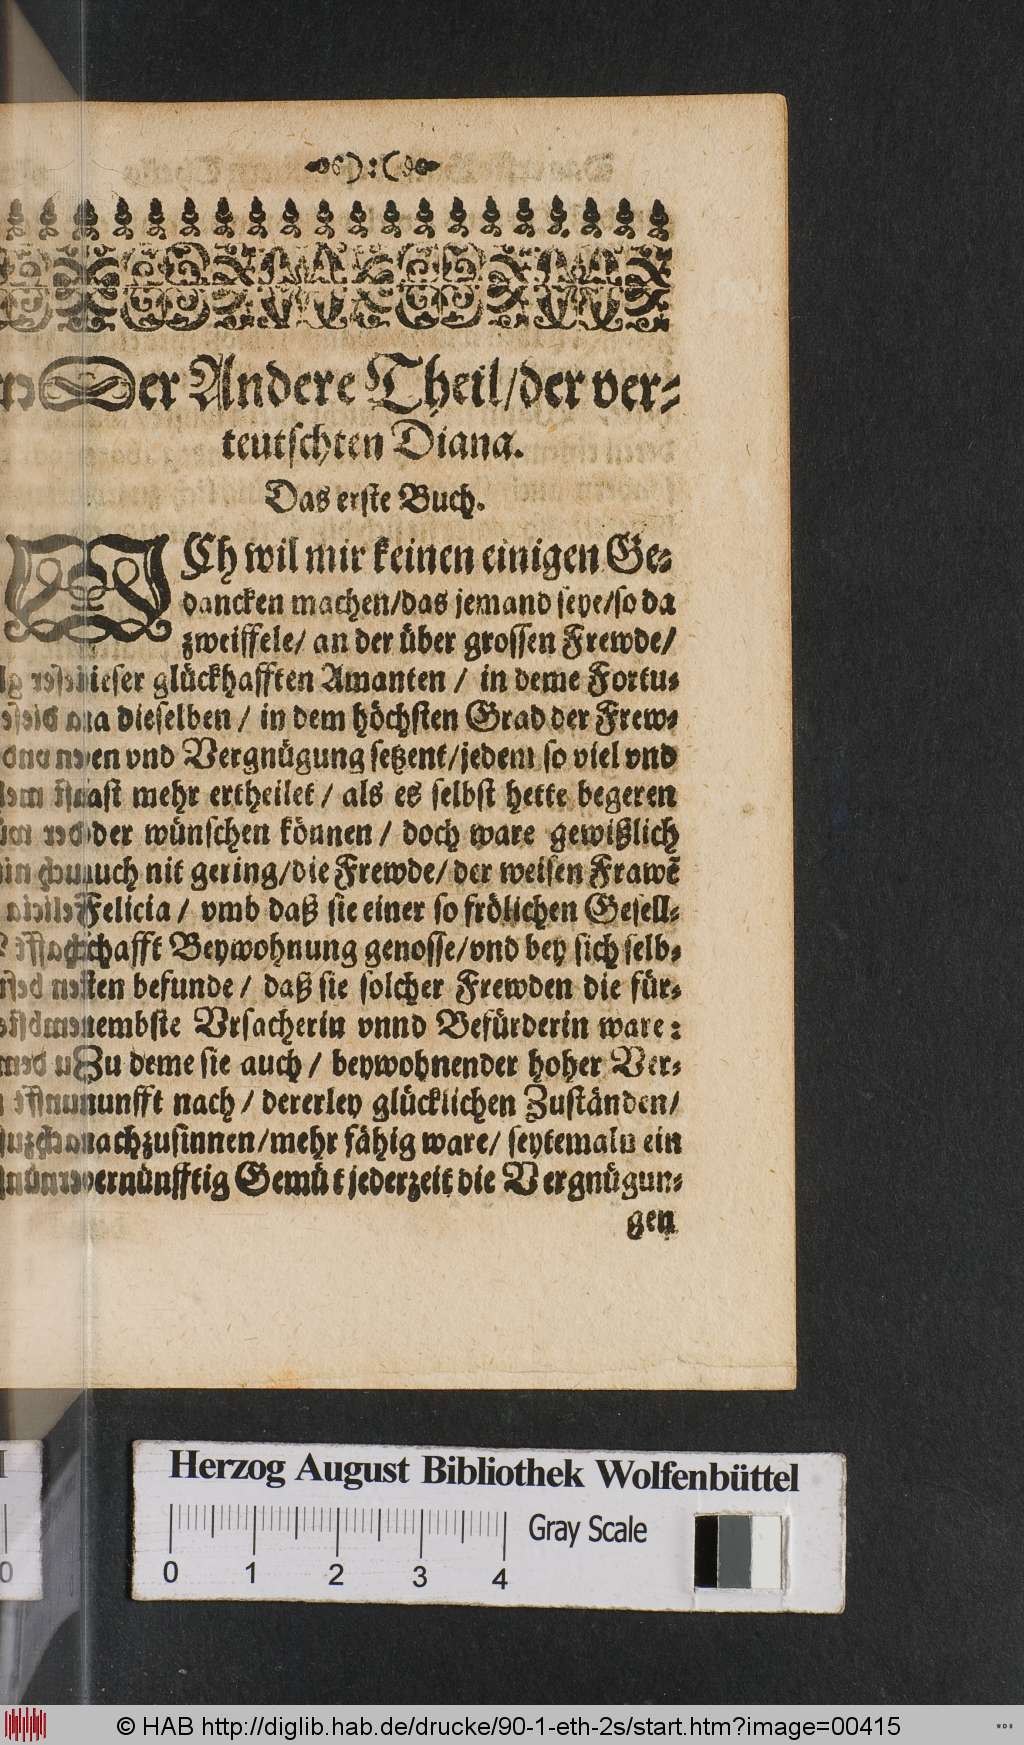 Der Andere Theil/der ver-
teutschten Diana.
Das erste Buch.
ICh wil mir keinen einigen Ge-
dancken machen/das jemand seye/so da
zweiffele/ an der über grossen Frewde/
dieser glückhafften Amanten / in deme Fortu-
na dieselben / in dem höchsten Grad der Frew-
den vnd Vergnügung setzent/jedem so viel vnd
fast mehr ertheilet / als es selbst hette begeren
oder wünschen können / doch ware gewißlich
auch nit gering/die Frewde/ der weisen Frawẽ
Felicia / vmb daß sie einer so frölichen Gesell-
schafft Beywohnung genosse/vnd bey sich selb-
sten befunde / daß sie solcher Frewden die für-
nembste Vrsacherin vnnd Befürderin ware:
Zu deme sie auch / beywohnender hoher Ver-
nunfft nach / dererley glücklichen Zuständen/
nachzusinnen/mehr fähig ware/ seytemaln ein
vernünfftig Gemüt jederzeit die Vergnügun-
gen
Herzog August Bibliothek Wolfenbüttel
Gray Scale
0 1 2 3 4
© HAB http://diglib.hab.de/drucke/90-1-eth-2s/start.htm?image=00415